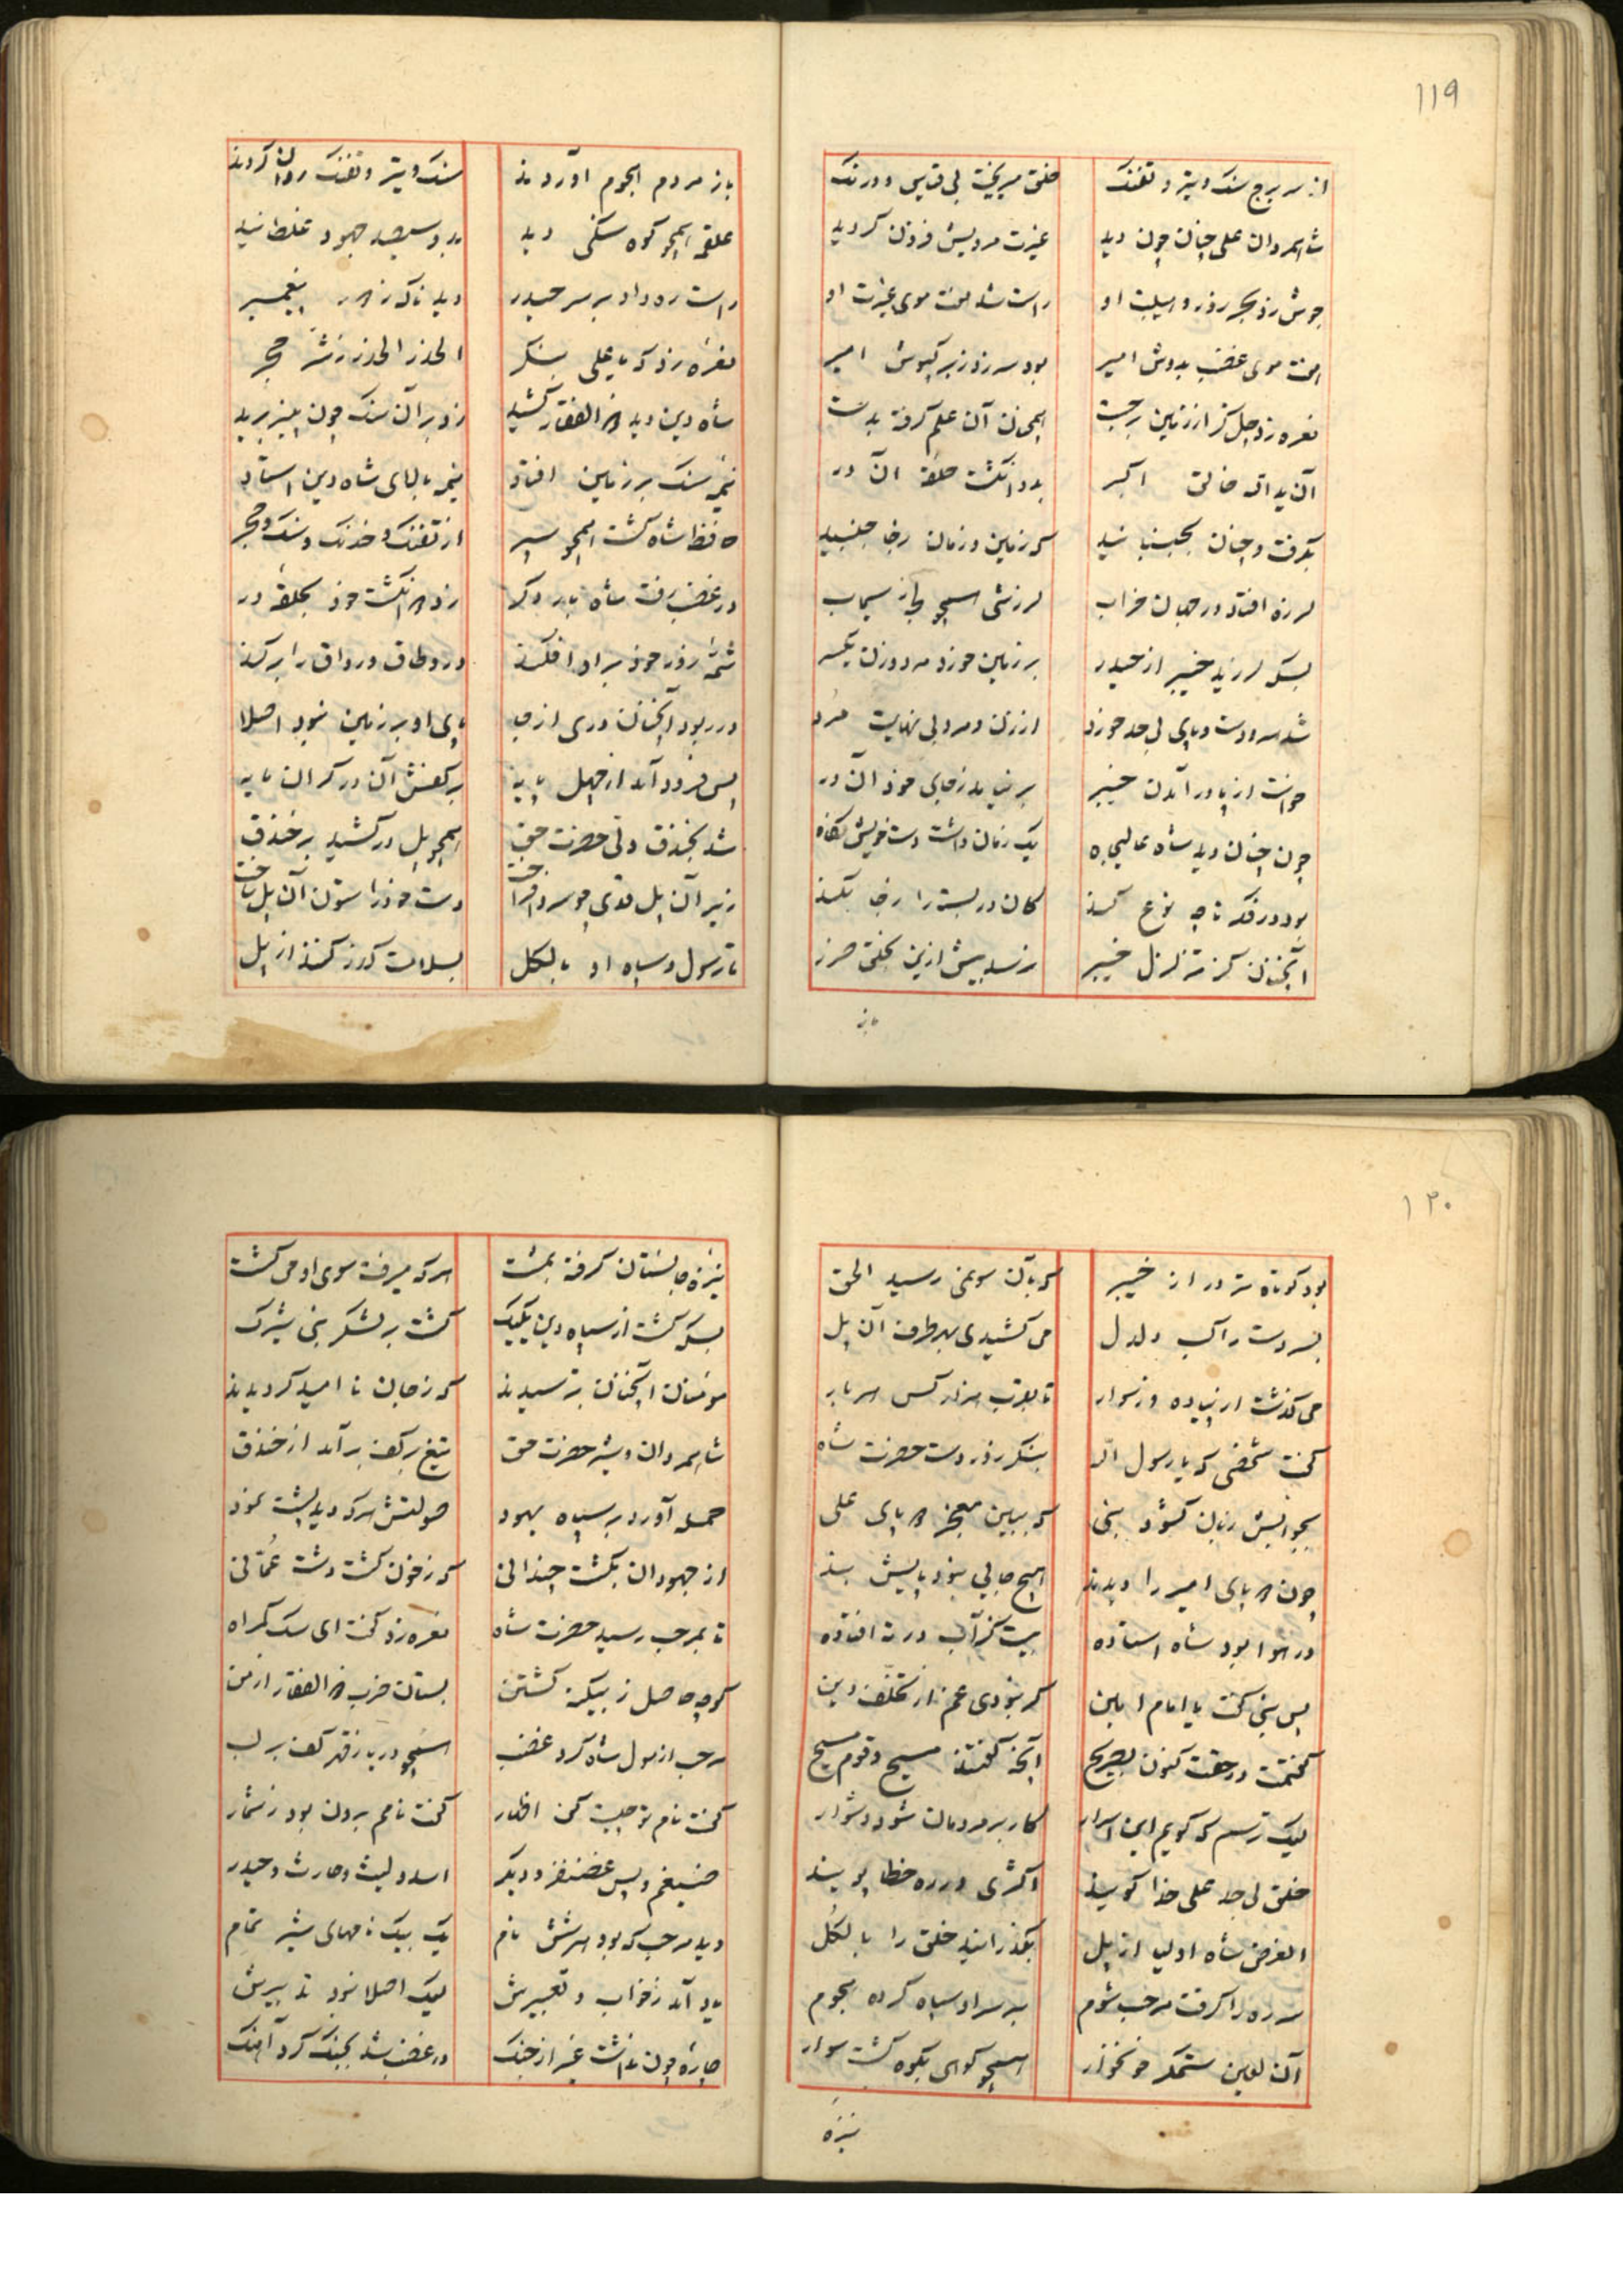 ۱۱۹
از سر برج سنک و تیر و تفنک خلق میریخت بی قیاس و درنک
شاه مردان علی چنان چون دید غیرت مردیش فزون کردید
جوش زد بحر زور و هیبت او راست شد هفت موی غیرت او
هفت موی غضب بدوش امیر بود سر زد زیر کپوش امیر
نعره زد چل کز از زمین برجست همچنان آن علم کرفته بدست
آن ید الله خالق اکبر بدو انکشت حلقهٔ آن در
بکرفت و چنان بجنبانید که زمین و زمان زجا جنبید
لرزه افتاد در جهان خراب لرزشی همچو بحر از سیماب
بسکه لرزید خیبر از حیدر بر زمین خورد مرد و زن یکسر
شد سر و دست و پای بی حد خورد از زن و مرد بی نهایت مرد
خواست از پا در آمدن خیبر بر نیامد زجای خود آن در
چون چنان دید شاه عالیجاه یک زمان داشت دست خویش نکاه
بود در فکر تا چه نوع کند کان در بسته را زجا بکند
آنچنان کز تزلزل خیبر نرسد بیش ازین بخلق ضرر
باز
باز مردم هجوم آوردند سنک و تیر و تفنک روان کردند
علقمه همچو کوه سنکی دید بدو سیصد جهود غلطانید
راست ره داد بر سر حیدر دید ناکه ز دور پیغمبر
نعره زد که یا علی بنکر الحذر الحذر ز شر حجر
شاه دین دید و ذو الفقار کشید زد بر آن سنک چون پنیر برید
نیمهٔ سنک بر زمین افتاد نیمه بالای شاه دین استاد
حافظ شاه کشت همچو سپر از تفنک و خدنک و سنک و حجر
در غضب رفت شاه بار دکر زد دو انکشت خود بحلقهٔ در
شمهٔ زور خود بر او افکند در و طاق و رواق را بر کند
در ربود آنچنان دری از جا پای او بر زمین نبود اصلا
پس فرود آمد از چهل پایه بر کفش آن در کران مایه
شد بخندق ولی حضرت حق همچو پل در کشید بر خندق
زیر آن پل قدی چو سرو افراخت دست خود را ستون آن پل ساخت
تا رسول و سپاه او بالکل بسلامت کذر کنند از پل
۱۲۰
بود کوتاه تر در از خیبر که بآن سو نمی رسید الحق
بسر دست راکب دلدل می کشیدی بهر طرف آن پل
می کذشت از پیاده و ز سوار تا بقرب هزار کس هر بار
کفت شخصی که یا رسول الله بنکر زور دست حضرت شاه
بجوابش زبان کشود نبی که ببین معجز دو پای علی
چون دو پای امیر را دیدند هیچ جایی نبود پایش بند
در هوا بود شاه استاده بیست کز آب در ته افتاده
پس نبی کفت یا امام امین کر نبودی غم از تخلف دین
کفتمت در حقت کنون بصریح آنچه کفتند مسیح و قوم مسیح
لیک ترسم که کویم این اسرار کار بر مردمان شود دشوار
خلق بی حد علی خدا کویند اکثری در ره خطا پویند
الغرض شاه اولیا از پل بکذرانید خلق را بالکل
سر ره را کرفت مرحب شوم بر سر او سپاه کرده هجوم
آن لعین ستمکر خونخوار همچو کوهی بکوه کشت سوار
نیزه
نیزهٔ جانستان کرفته بمشت هرکه میرفت سوی او می کشت
بسکه کشت از سپاه دین یکیک کشت بر لشکر نبی شیرک
مؤمنان آنچنان بترسیدند که ز جان نا امید کردیدند
شاه مردان و شیر حضرت حق تیغ بر کف بر آمد از خندق
حمله آورد بر سپاه یهود صولتش هرکه دید پشت نمود
از جهودان بکشت چندانی که ز خون کشت دشت عمانی
تا بمرحب رسید حضرت شاه نعره زد کفت ای سک کمراه
کو چه حاصل ز بیکنه کشتن بستان ضرب ذو الفقار از من
مرحب از هول شاه کرد غضب همچو دریا ز قهر کف بر لب
کفت نام تو چیست کن اظهار کفت نامم برون بود ز شمار
ضیغم و پس غضنفر و دیکر اسد و لیث و حارث و حیدر
دید مرحب که بود هر شش نام یک بیک نامهای شیر تمام
یاد آمد ز خواب و تعبیرش لیک اصلا نبود تدبیرش
چاره چون نداشت غیر از جنک در غضب شد بجنک کرد آهنک